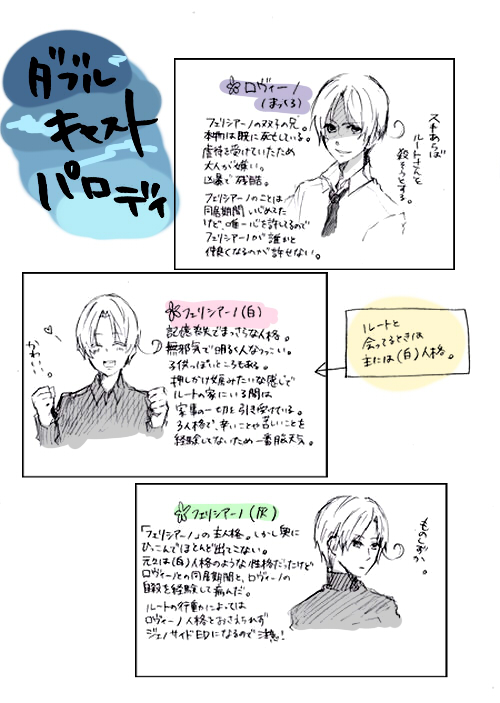 ダブル
キャスト
パロディ
ロヴィーノ
(まっくろ)
フェリシアーノの双子の兄。
本物は既に死亡している。
虐待を受けていたため
大人が嫌い。
凶暴で残酷。
フェリシアーノのことは
同居期間いじめてた
けど、唯一心を許してるので
フェリシアーノが誰かと
仲良くなるのが許せない。
スキあらば
ルートさんを
殺そうとする。
フェリシアーノ(白)
記憶喪失でまっさらな人格。
無邪気で明るく人なつっこい。
子供っぽいところもある。
押しかけ女房みたいな感じで
ルートの家にいる間は
家事の一切を引き受けている。
3人格で、辛いことや苦しいことを
経験してないため一番能天気。
かわいい。
ルートと
会ってるときは
主には(白)人格。
フェリシアーノ(灰)
「フェリシアーノ」の主人格。しかし奥に
ひっこんでほとんど出てこない。
元々は(白)人格のような性格だったけど
ロヴィーノとの同居期間と、ロヴィーノの
自殺を経験して病んだ。
ルートの行動によっては
ロヴィーノ人格をおさえられず
ジェノサイドEDになるので注意!
ものしずか。